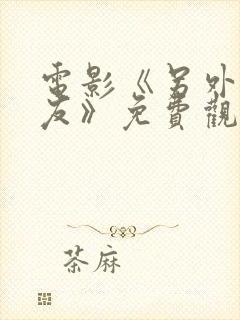 電影《另外
友》免費觀
茶麻